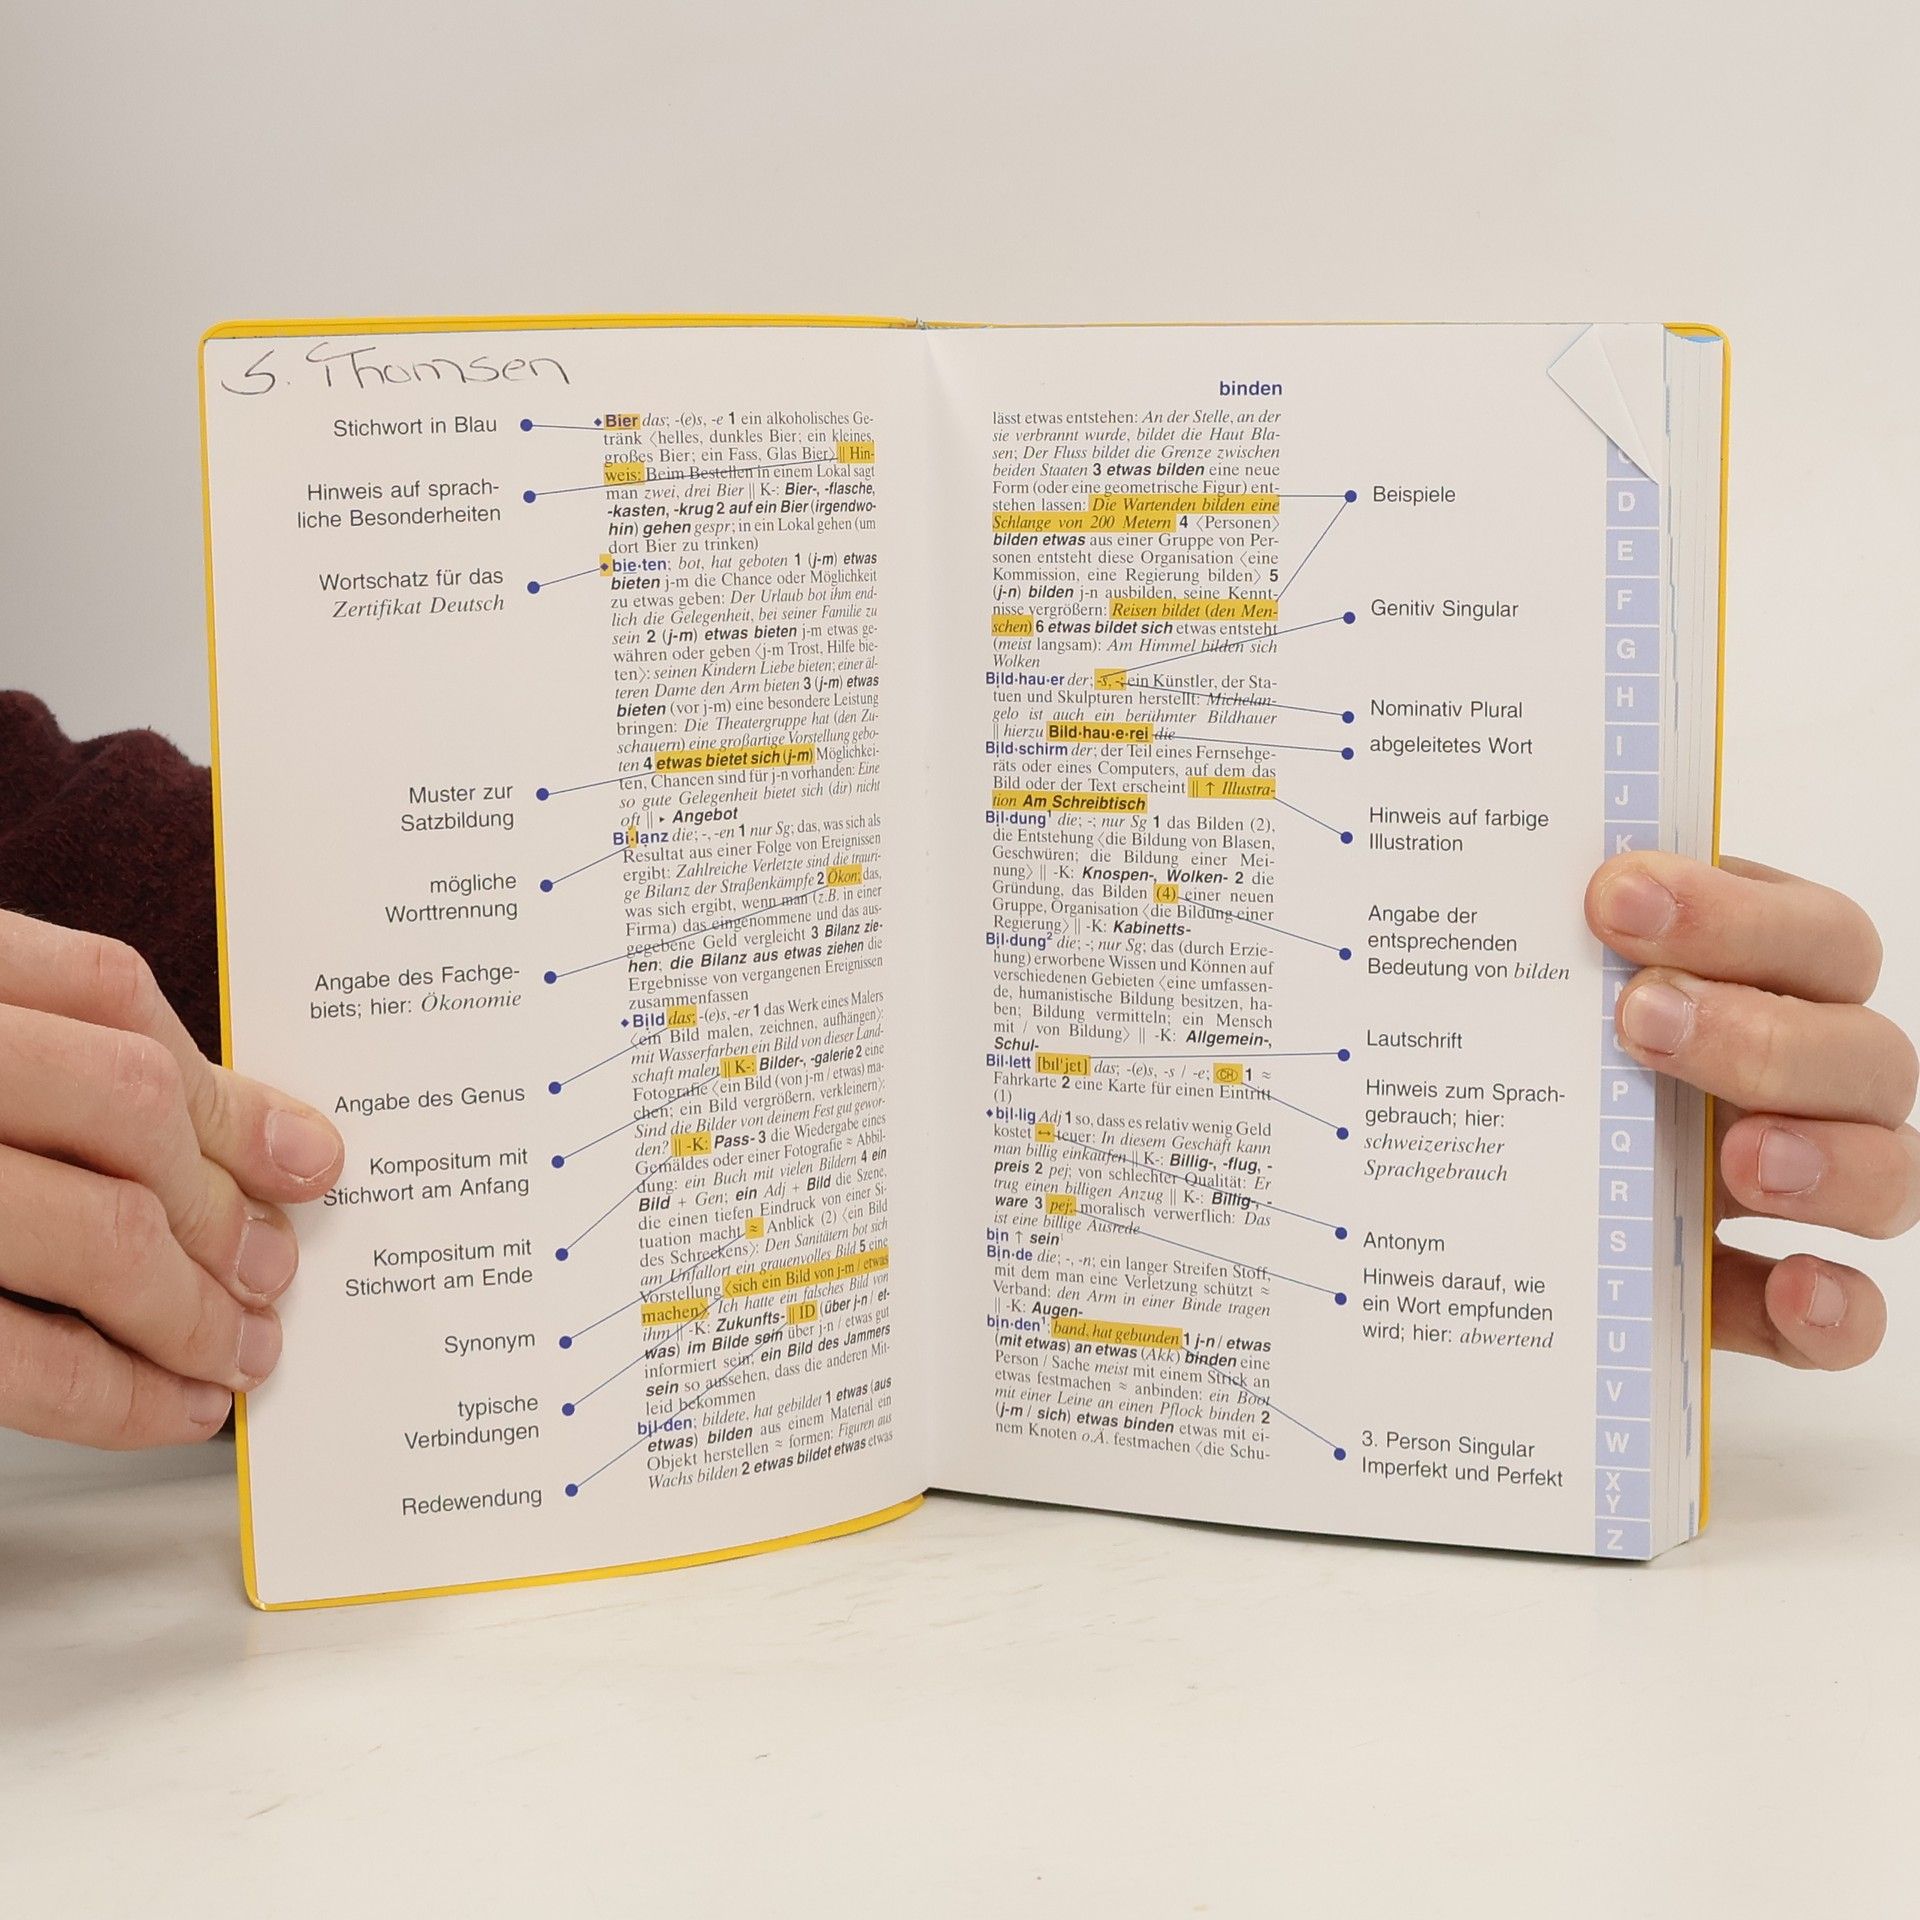 S. Thomsen
Stichwort in Blau
Hinweis auf sprach-
liche Besonderheiten
Wortschatz für das
Zertifikat Deutsch
Muster zur
Satzbildung
mögliche
Worttrennung
Angabe des Fachge-
biets; hier: Ökonomie
Angabe des Genus
Kompositum mit
Stichwort am Anfang
Kompositum mit
Stichwort am Ende
Synonym
typische
Verbindungen
Redewendung
◆Bier das; -(e)s, -e 1 ein alkoholisches Ge-
tränk ⟨helles, dunkles Bier; ein kleines,
großes Bier; ein Fass, Glas Bier⟩ || Hin-
weis: Beim Bestellen in einem Lokal sagt
man zwei, drei Bier || K-: Bier-, -flasche,
-kasten, -krug 2 auf ein Bier (irgendwo-
hin) gehen gespr; in ein Lokal gehen (um
dort Bier zu trinken)
◆bie·ten; bot, hat geboten 1 (j-m) etwas
bieten j-m die Chance oder Möglichkeit
zu etwas geben: Der Urlaub bot ihm end-
lich die Gelegenheit, bei seiner Familie zu
sein 2 (j-m) etwas bieten j-m etwas ge-
währen oder geben ⟨j-m Trost, Hilfe bie-
ten⟩: seinen Kindern Liebe bieten; einer äl-
teren Dame den Arm bieten 3 (j-m) etwas
bieten (vor j-m) eine besondere Leistung
bringen: Die Theatergruppe hat (den Zu-
schauern) eine großartige Vorstellung gebo-
ten 4 etwas bietet sich (j-m) Möglichkei-
ten, Chancen sind für j-n vorhanden: Eine
so gute Gelegenheit bietet sich (dir) nicht
oft || ▸ Angebot
Bi·lanz die; -, -en 1 nur Sg; das, was sich als
Resultat aus einer Folge von Ereignissen
ergibt: Zahlreiche Verletzte sind die trauri-
ge Bilanz der Straßenkämpfe 2 Ökon; das,
was sich ergibt, wenn man (z.B. in einer
Firma) das eingenommene und das aus-
gegebene Geld vergleicht 3 Bilanz zie-
hen; die Bilanz aus etwas ziehen die
Ergebnisse von vergangenen Ereignissen
zusammenfassen
◆Bild das; -(e)s, -er 1 das Werk eines Malers
⟨ein Bild malen, zeichnen, aufhängen⟩:
mit Wasserfarben ein Bild von dieser Land-
schaft malen || K-: Bilder-, -galerie 2 eine
Fotografie ⟨ein Bild (von j-m / etwas) ma-
chen; ein Bild vergrößern, verkleinern⟩:
Sind die Bilder von deinem Fest gut gewor-
den? || -K: Pass- 3 die Wiedergabe eines
Gemäldes oder einer Fotografie ≈ Abbil-
dung: ein Buch mit vielen Bildern 4 ein
Bild + Gen; ein Adj + Bild die Szene,
die einen tiefen Eindruck von einer Si-
tuation macht ≈ Anblick (2) ⟨ein Bild
des Schreckens⟩: Den Sanitätern bot sich
am Unfallort ein grauenvolles Bild 5 eine
Vorstellung ⟨sich ein Bild von j-m / etwas
machen⟩: Ich hatte ein falsches Bild von
ihm || -K: Zukunfts- || ID (über j-n / et-
was) im Bilde sein über j-n / etwas gut
informiert sein; ein Bild des Jammers
sein so aussehen, dass die anderen Mit-
leid bekommen
bil·den; bildete, hat gebildet 1 etwas (aus
etwas) bilden aus einem Material ein
Objekt herstellen ≈ formen: Figuren aus
Wachs bilden 2 etwas bildet etwas etwas
binden
lässt etwas entstehen: An der Stelle, an der
sie verbrannt wurde, bildet die Haut Bla-
sen; Der Fluss bildet die Grenze zwischen
beiden Staaten 3 etwas bilden eine neue
Form (oder eine geometrische Figur) ent-
stehen lassen: Die Wartenden bilden eine
Schlange von 200 Metern 4 ⟨Personen⟩
bilden etwas aus einer Gruppe von Per-
sonen entsteht diese Organisation ⟨eine
Kommission, eine Regierung bilden⟩ 5
(j-n) bilden j-n ausbilden, seine Kennt-
nisse vergrößern: Reisen bildet (den Men-
schen) 6 etwas bildet sich etwas entsteht
(meist langsam): Am Himmel bilden sich
Wolken
Bild·hau·er der; -s, -; ein Künstler, der Sta-
tuen und Skulpturen herstellt: Michelan-
gelo ist auch ein berühmter Bildhauer
|| hierzu Bild·hau·e·rei die
Bild·schirm der; der Teil eines Fernsehge-
räts oder eines Computers, auf dem das
Bild oder der Text erscheint || ↑ Illustra-
tion Am Schreibtisch
Bil·dung¹ die; -; nur Sg 1 das Bilden (2),
die Entstehung ⟨die Bildung von Blasen,
Geschwüren; die Bildung einer Mei-
nung⟩ || -K: Knospen-, Wolken- 2 die
Gründung, das Bilden (4) einer neuen
Gruppe, Organisation ⟨die Bildung einer
Regierung⟩ || -K: Kabinetts-
Bil·dung² die; -; nur Sg; das (durch Erzie-
hung) erworbene Wissen und Können auf
verschiedenen Gebieten ⟨eine umfassen-
de, humanistische Bildung besitzen, ha-
ben; Bildung vermitteln; ein Mensch
mit / von Bildung⟩ || -K: Allgemein-,
Schul-
Bil·lett [bɪl'jɛt] das; -(e)s, -s / -e; CH 1 ≈
Fahrkarte 2 eine Karte für einen Eintritt
(1)
◆bil·lig Adj 1 so, dass es relativ wenig Geld
kostet ↔ teuer: In diesem Geschäft kann
man billig einkaufen || K-: Billig-, -flug, -
preis 2 pej; von schlechter Qualität: Er
trug einen billigen Anzug || K-: Billig-, -
ware 3 pej; moralisch verwerflich: Das
ist eine billige Ausrede
bin ↑ sein¹
Bin·de die; -, -n; ein langer Streifen Stoff,
mit dem man eine Verletzung schützt ≈
Verband: den Arm in einer Binde tragen
|| -K: Augen-
bin·den¹; band, hat gebunden 1 j-n / etwas
(mit etwas) an etwas (Akk) binden eine
Person / Sache meist mit einem Strick an
etwas festmachen ≈ anbinden: ein Boot
mit einer Leine an einen Pflock binden 2
(j-m / sich) etwas binden etwas mit ei-
nem Knoten o.Ä. festmachen ⟨die Schu-
Beispiele
Genitiv Singular
Nominativ Plural
abgeleitetes Wort
Hinweis auf farbige
Illustration
Angabe der
entsprechenden
Bedeutung von bilden
Lautschrift
Hinweis zum Sprach-
gebrauch; hier:
schweizerischer
Sprachgebrauch
Antonym
Hinweis darauf, wie
ein Wort empfunden
wird; hier: abwertend
3. Person Singular
Imperfekt und Perfekt
D
E
F
G
H
I
J
K
P
Q
R
S
T
U
V
W
X
Y
Z